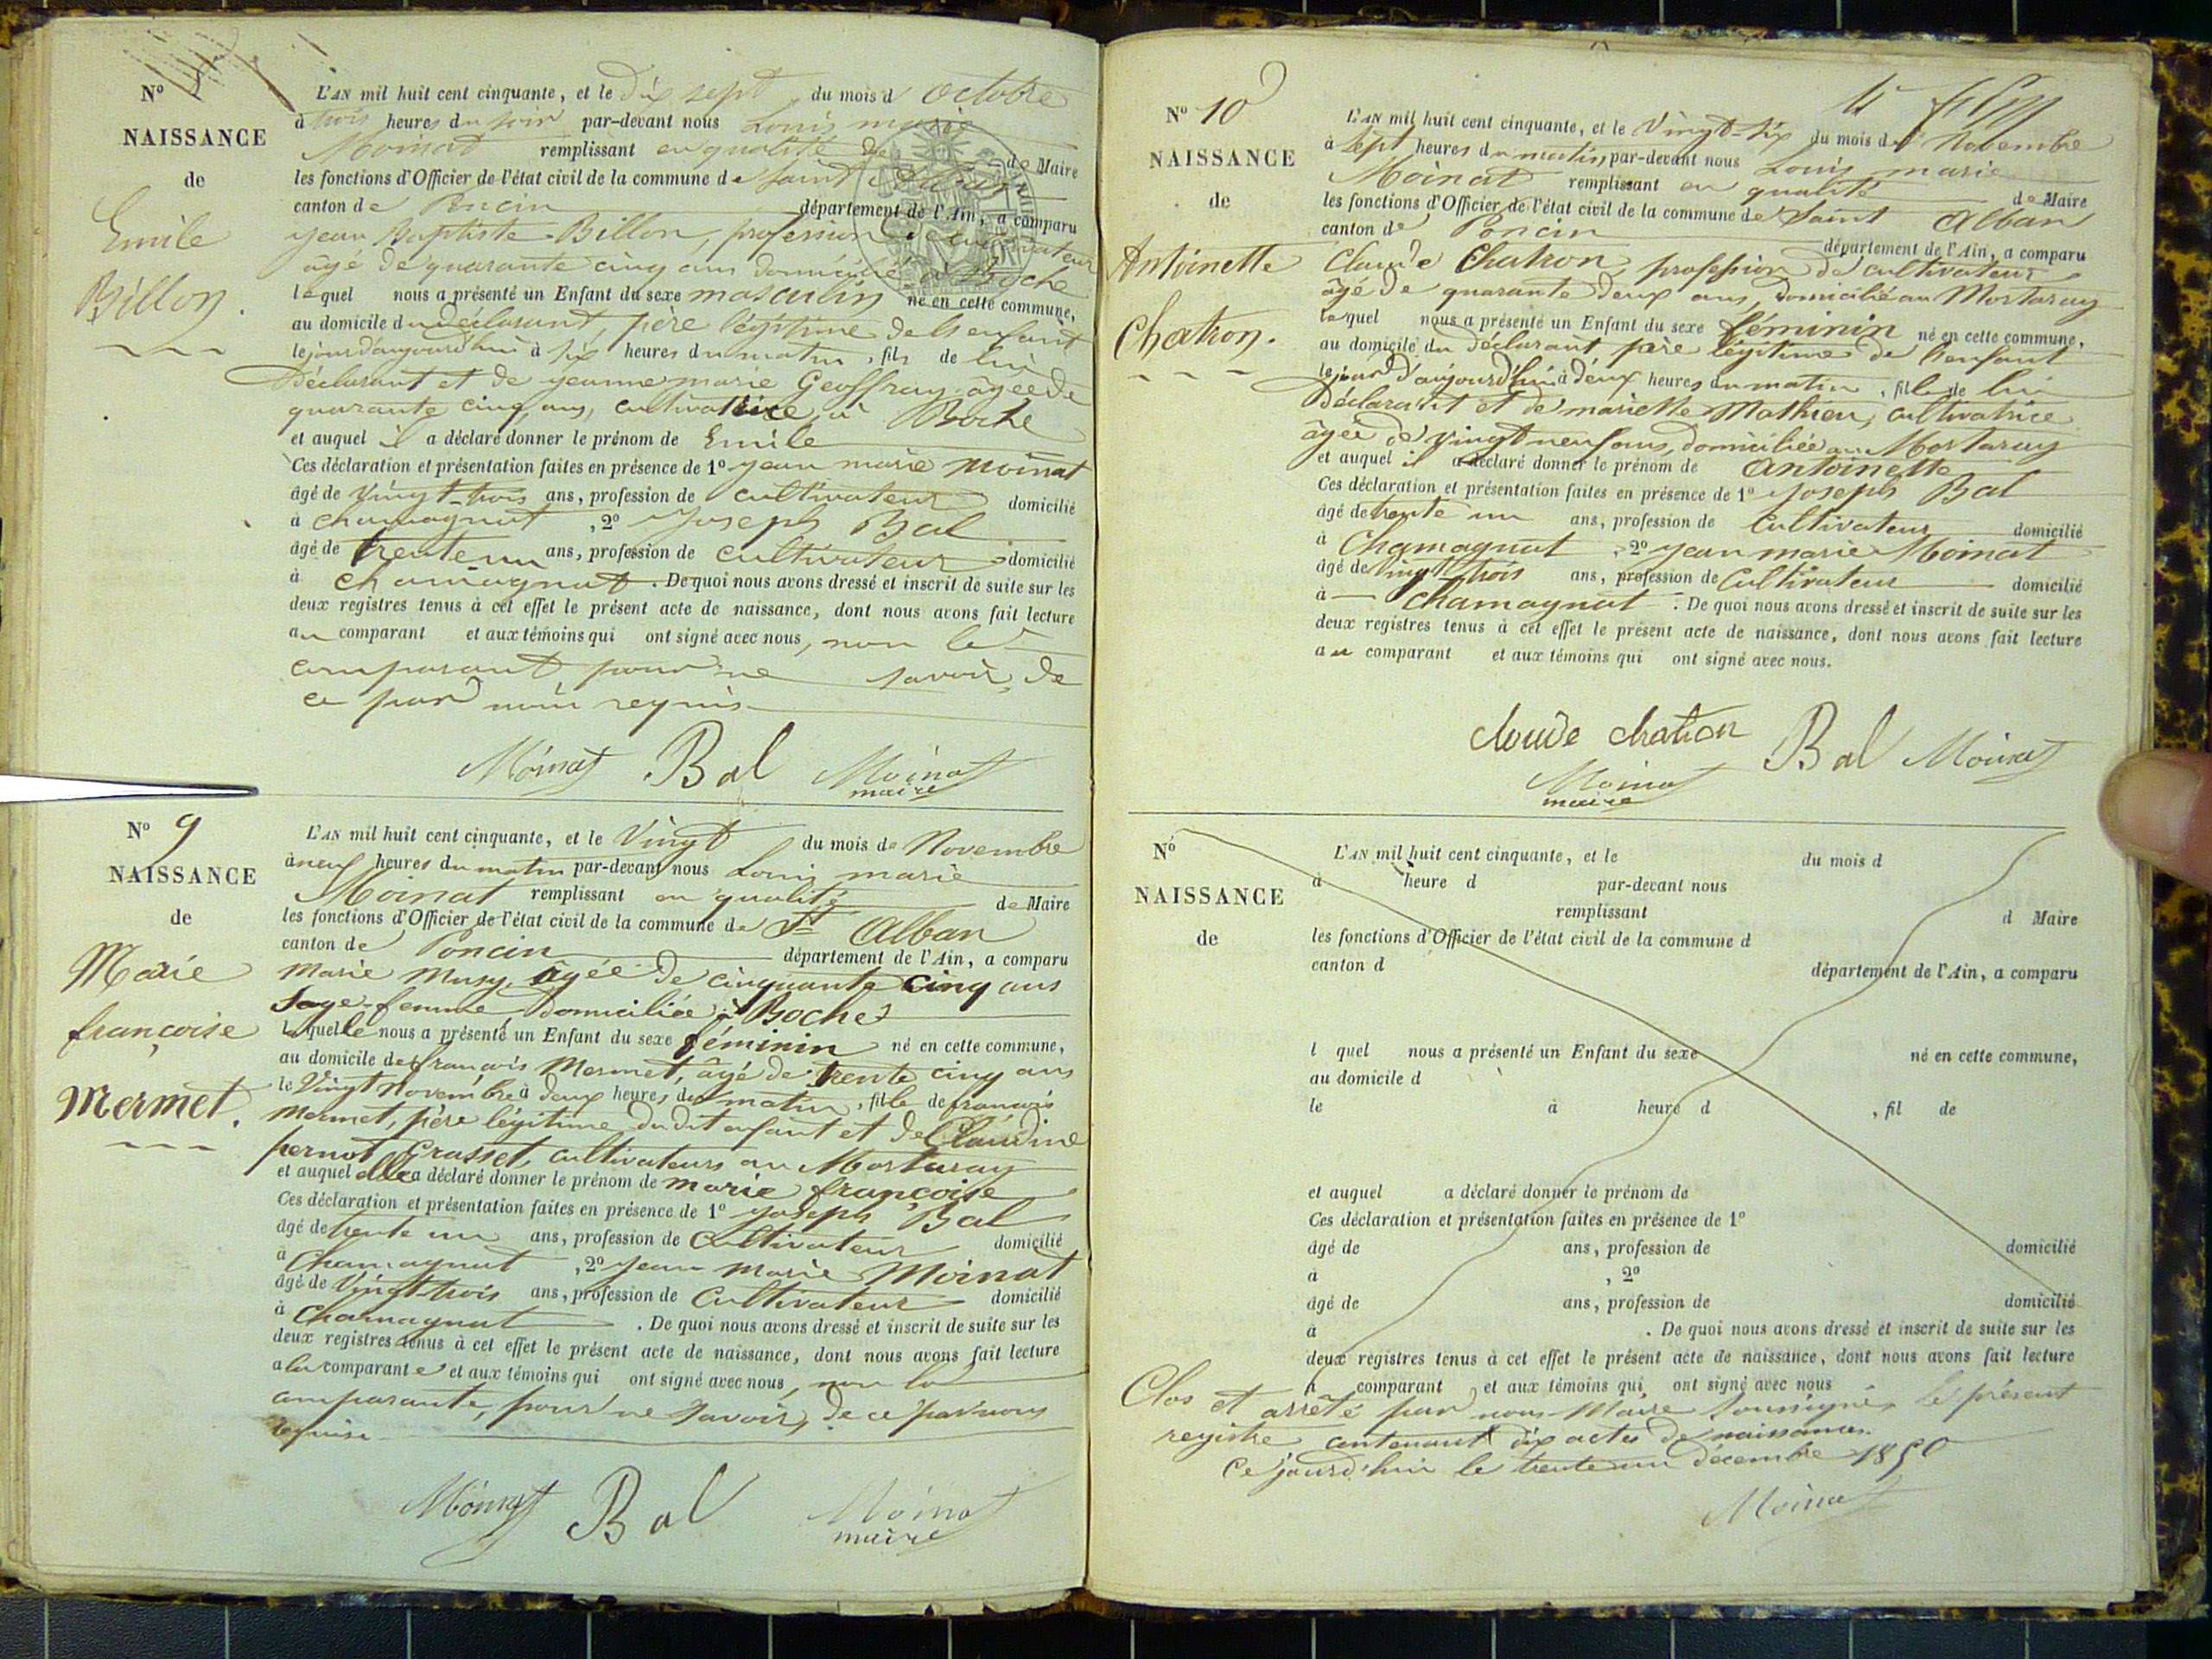 N°
NAISSANCE
de
Emile
Billon.
L'AN mil huit cent cinquante, et le dix sept du mois d'Octobre
à trois heures du soir par-devant nous Louis marie
Moinat remplissant en qualité de Maire
les fonctions d'Officier de l'état civil de la commune de Saint Alban
canton de Poncin département de l'Ain, a comparu
jean Baptiste Billon, profession de cultivateur
âgé de quarante cinq ans domicilié à Boche
lequel nous a présenté un Enfant du sexe masculin né en cette commune,
au domicile du déclarant, père légitime de l'enfant
le jour d'aujourd'hui à six heures du matin, fils de lui
Déclarant et de jeanne marie Geoffray âgée de
quarante cinq ans, cultivatrice à Boche
et auquel il a déclaré donner le prénom de Emile
Ces déclaration et présentation faites en présence de 1° jean marie Moinat
âgé de Vingt-trois ans, profession de cultivateur domicilié
à chamagnat, 2° Joseph Bal
âgé de trente un ans, profession de cultivateur domicilié
à chamagnat. De quoi nous avons dressé et inscrit de suite sur les
deux registres tenus à cet effet le présent acte de naissance, dont nous avons fait lecture
au comparant et aux témoins qui ont signé avec nous, non le
comparant pour ne savoir, de
ce par nous requis
Moinat Bal Moinat
maire
N° 9
NAISSANCE
de
Marie
françoise
Mermet.
L'AN mil huit cent cinquante, et le Vingt du mois de Novembre
à neuf heures du matin par-devant nous Louis marie
Moinat remplissant en qualité de Maire
les fonctions d'Officier de l'état civil de la commune de St Alban
canton de Poncin département de l'Ain, a comparu
Marie Musy, âgée de cinquante cinq ans
Sage-femme, domiciliée à Boche
laquelle nous a présenté un Enfant du sexe féminin né en cette commune,
au domicile de françois Mermet, âgé de trente cinq ans
le Vingt Novembre à deux heures du matin, fille de françois
Mermet, père légitime du dit enfant et de Claudine
pernot Grasset, cultivateurs au Mortaray
et auquel elle a déclaré donner le prénom de marie françoise
Ces déclaration et présentation faites en présence de 1° Joseph Bal
âgé de trente un ans, profession de Cultivateur domicilié
à Chamagnat, 2° Jean Marie Moinat
âgé de Vingt trois ans, profession de Cultivateur domicilié
à Chamagnat. De quoi nous avons dressé et inscrit de suite sur les
deux registres tenus à cet effet le présent acte de naissance, dont nous avons fait lecture
a la comparante et aux témoins qui ont signé avec nous, non la
comparante, pour ne savoir, de ce par nous
requise
Moinat Bal Moinat
maire
N° 10
NAISSANCE
de
Antoinette
Chatron.
L'AN mil huit cent cinquante, et le Vingt-six du mois de Novembre
à Sept heures du matin, par-devant nous Louis marie
Moinat remplissant en qualité de Maire
les fonctions d'Officier de l'état civil de la commune de Saint Alban
canton de Poncin département de l'Ain, a comparu
Claude Chatron, profession de cultivateur
âgé de quarante deux ans, domicilié au Mortaray
lequel nous a présenté un Enfant du sexe féminin né en cette commune,
au domicile du déclarant père légitime de l'enfant
le jour d'aujourd'hui à deux heures du matin, fille de lui
Déclarant et de mariette Mathieu, cultivatrice
âgée de vingt neuf ans, domiciliée au Mortaray
et auquel il a déclaré donner le prénom de Antoinette
Ces déclaration et présentation faites en présence de 1° Joseph Bal
âgé de trente un ans, profession de Cultivateur domicilié
à Chamagnat, 2° jean marie Moinat
âgé de vingt trois ans, profession de Cultivateur domicilié
à Chamagnat. De quoi nous avons dressé et inscrit de suite sur les
deux registres tenus à cet effet le présent acte de naissance, dont nous avons fait lecture
au comparant et aux témoins qui ont signé avec nous.
cloude chatron Bal Moinat
Moinat
maire
N°
NAISSANCE
de
L'AN mil huit cent cinquante, et le du mois d
à heure d par-devant nous
remplissant d Maire
les fonctions d'Officier de l'état civil de la commune d
canton d département de l'Ain, a comparu
l quel nous a présenté un Enfant du sexe né en cette commune,
au domicile d
le à heure d , fil de
et auquel a déclaré donner le prénom de
Ces déclaration et présentation faites en présence de 1°
âgé de ans, profession de domicilié
à , 2°
âgé de ans, profession de domicilié
à . De quoi nous avons dressé et inscrit de suite sur les
deux registres tenus à cet effet le présent acte de naissance, dont nous avons fait lecture
a comparant et aux témoins qui ont signé avec nous
Clos et arrêté par nous Maire Soussigné, le présent
registre contenant dix actes de naissances.
Ce jourd'hui le trente un décembre 1850
Moinat